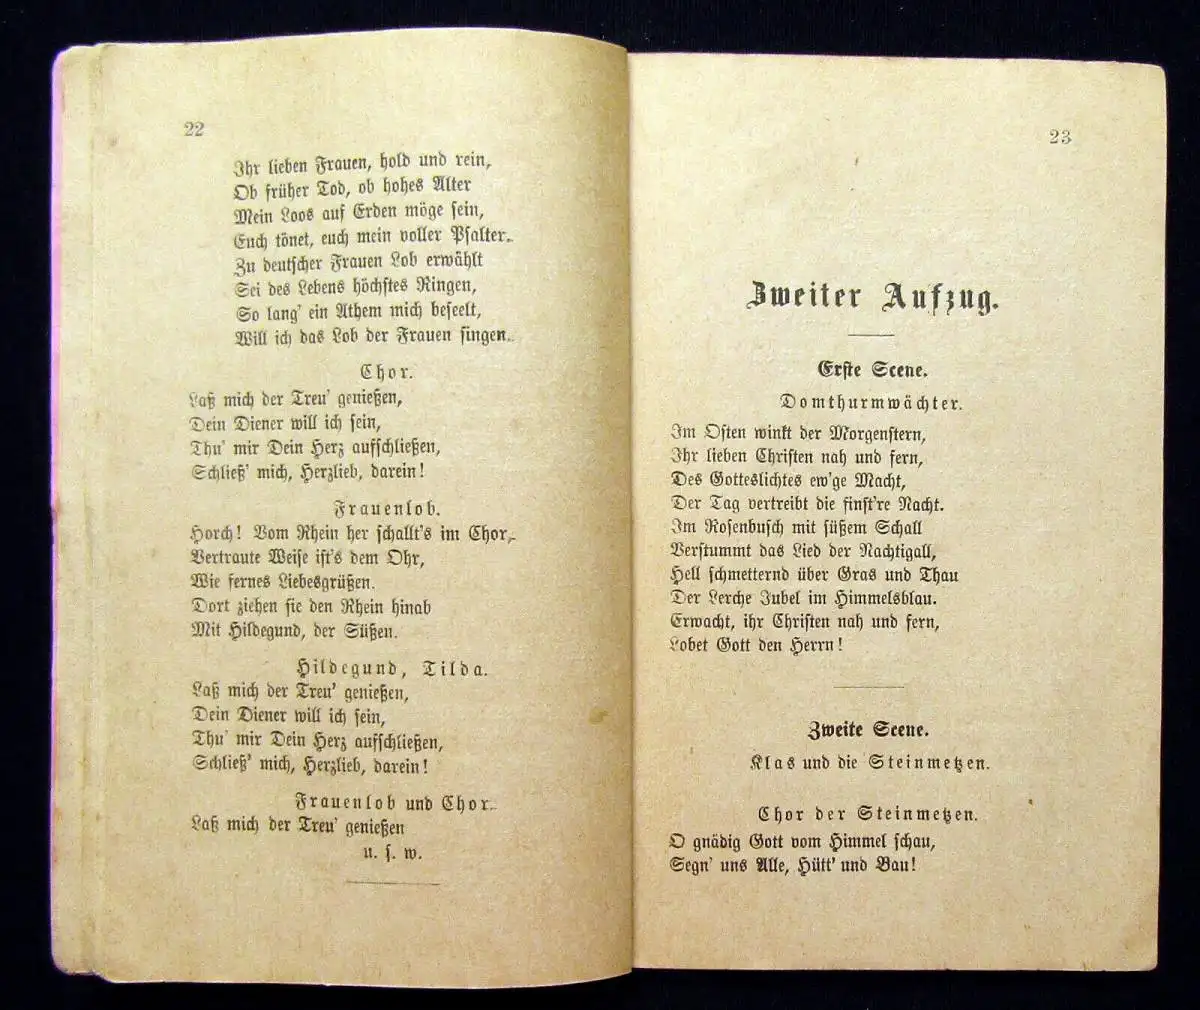 22
Ihr lieben Frauen, hold und rein,
Ob früher Tod, ob hohes Alter
Mein Loos auf Erden möge sein,
Euch tönet, euch mein voller Psalter.
Zu deutscher Frauen Lob erwählt
Sei des Lebens höchstes Ringen,
So lang' ein Athem mich beseelt,
Will ich das Lob der Frauen singen.
Chor.
Laß mich der Treu' genießen,
Dein Diener will ich sein,
Thu' mir Dein Herz aufschließen,
Schließ' mich, Herzlieb, darein!
Frauenlob.
Horch! Vom Rhein her schallt's im Chor,
Vertraute Weise ist's dem Ohr,
Wie fernes Liebesgrüßen.
Dort ziehen sie den Rhein hinab
Mit Hildegund, der Süßen.
Hildegund, Tilda.
Laß mich der Treu' genießen,
Dein Diener will ich sein,
Thu' mir Dein Herz aufschließen,
Schließ' mich, Herzlieb, darein!
Frauenlob und Chor.
Laß mich der Treu' genießen
u. s. w.
23
Zweiter Aufzug.
Erste Scene.
Domthurmwächter.
Im Osten winkt der Morgenstern,
Ihr lieben Christen nah und fern,
Des Gotteslichtes ew'ge Macht,
Der Tag vertreibt die finst're Nacht.
Im Rosenbusch mit süßem Schall
Verstummt das Lied der Nachtigall,
Hell schmetternd über Gras und Thau
Der Lerche Jubel im Himmelsblau.
Erwacht, ihr Christen nah und fern,
Lobet Gott den Herrn!
Zweite Scene.
Klas und die Steinmetzen.
Chor der Steinmetzen.
O gnädig Gott vom Himmel schau,
Segn' uns Alle, Hütt' und Bau!